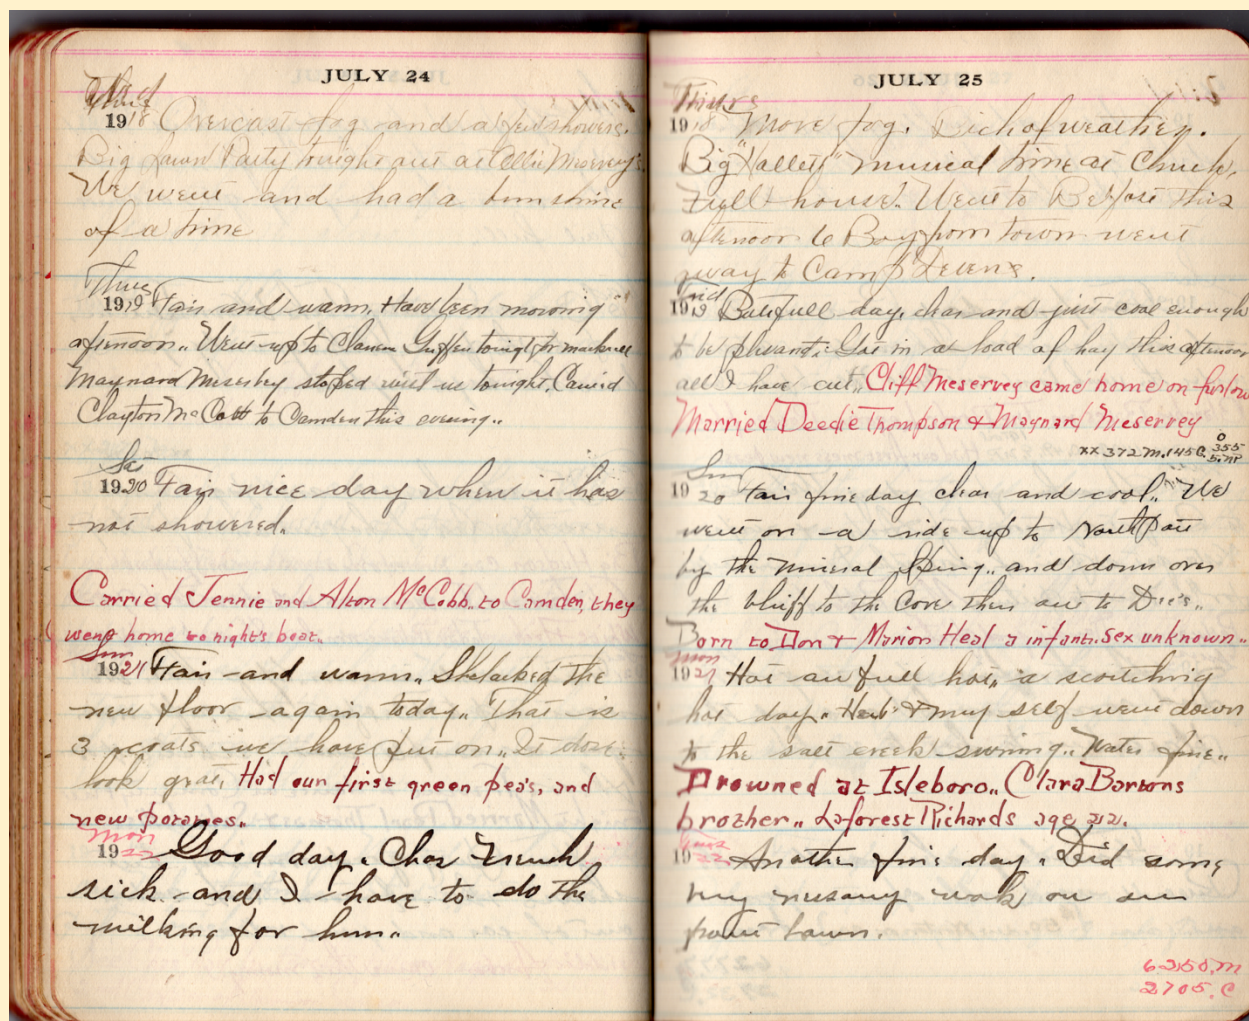 JULY 24
Wed
1918 Overcast fog and a few showers.
Big Lawn Party tonight out at Allie Meservey's
We went and had a bum shine
of a time
Thurs
1919 Fair and warm. Have been mowing
afternoon.. Went up to Clarence tonight for mackerel
Maynard Meservey stoped with us tonight. Carried
Clayton McCobb to Camden this evening..
Sat
1920 Fair nice day when it has
not showered.
Carried Jennie and Alton McCobb.. to Camden, they
went home to night's boat..
Sun
1921 Fair and warm.. Shelacked the
new floor again today.. That is
3 coats we have put on.. It dose
look grat. Had our first green pea's, and
new potatoes..
Mon
1922 Good day. Chas French
sick and I have to do the
milking for him..
JULY 25
Thurs
1918 More fog. weather.
Big "Halletts" musical time at Church.
Full house. Went to Belfast this
afternoon 6 Boys from town went
away to Camp Devens.
Frid
1919 Butifull day, clear and just cool enough
to be plesant.. Got in a load of hay this afternoon
all I have cut.. Cliff Meservey came home on furlow
Married Deedie Thompson & Maynard Meservey
xx 372 M. 145 G. 0 355
Sun
1920 Fair fine day clear and cool.. We
went on a ride up to Northport
by the mineral Spring.. and down over
the bluff to the Cove then out to Dee's..
Born to Don + Marion Heal a infant. Sex unknown..
Mon
1921 Hot awfull hot.. a scortching
hot day.. Herb & my self went down
to the salt creek swiming.. Water fine..
Drowned at Isleboro.. Clara Bartons
brother.. Laforest Richards age 22.
1922 Another fine day. Did some
nursary work on our
front lawn.
6250. M
2705. C